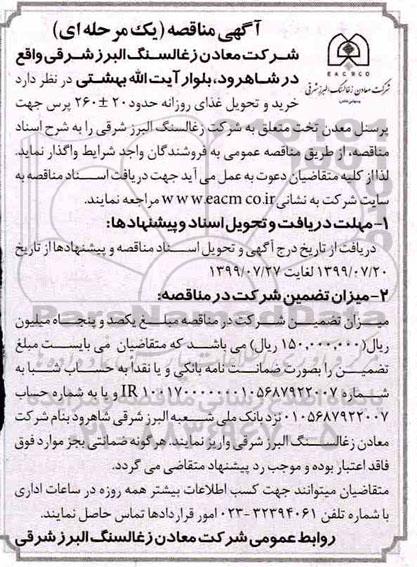 آگهی مناقصه (یک مرحله ای)
EACMCO
شرکت معادن زغالسنگ البرز شرقی
شرکت معادن زغالسنگ البرز شرقی واقع
در شاهرود، بلوار آیت الله بهشتی در نظر دارد
خرید و تحویل غذای روزانه حدود ۲۰ ± ۲۶۰ پرس جهت
پرسنل معدن تخت متعلق به شرکت زغالسنگ البرز شرقی را به شرح اسناد
مناقصه، از طریق مناقصه عمومی به فروشندگان واجد شرایط واگذار نماید.
لذا از کلیه متقاضیان دعوت به عمل می آید جهت دریافت اسناد مناقصه به
سایت شرکت به نشانی www.eacmco.ir مراجعه نمایند.
۱- مهلت دریافت و تحویل اسناد و پیشنهادها:
دریافت از تاریخ درج آگهی و تحویل اسناد مناقصه و پیشنهادها از تاریخ
۱۳۹۹/۰۷/۲۰ لغایت ۱۳۹۹/۰۷/۲۷
۲- میزان تضمین شرکت در مناقصه:
میزان تضمین شرکت در مناقصه مبلغ یکصد و پنجاه میلیون
ریال (۱۵۰,۰۰۰,۰۰۰ ریال) می باشد که متقاضیان می بایست مبلغ
تضمین را بصورت ضمانت نامه بانکی و یا نقدا به حساب شبا به
شماره IR ۱۰۰۱۷۰۰۰۰۰۰۱۰۵۶۸۷۹۲۲۰۰۷ و یا به شماره حساب
۰۱۰۵۶۸۷۹۲۲۰۰۷ نزد بانک ملی شعبه البرز شرقی شاهرود بنام شرکت
معادن زغالسنگ البرز شرقی واریز نمایند. هرگونه ضمانتی بجز موارد فوق
فاقد اعتبار بوده و موجب رد پیشنهاد متقاضی می گردد.
متقاضیان میتوانند جهت کسب اطلاعات بیشتر همه روزه در ساعات اداری
با شماره تلفن ۳۲۳۹۴۰۶۱-۰۲۳ امور قراردادها تماس حاصل نمایند.
روابط عمومی شرکت معادن زغالسنگ البرز شرقی
ParsNamadData